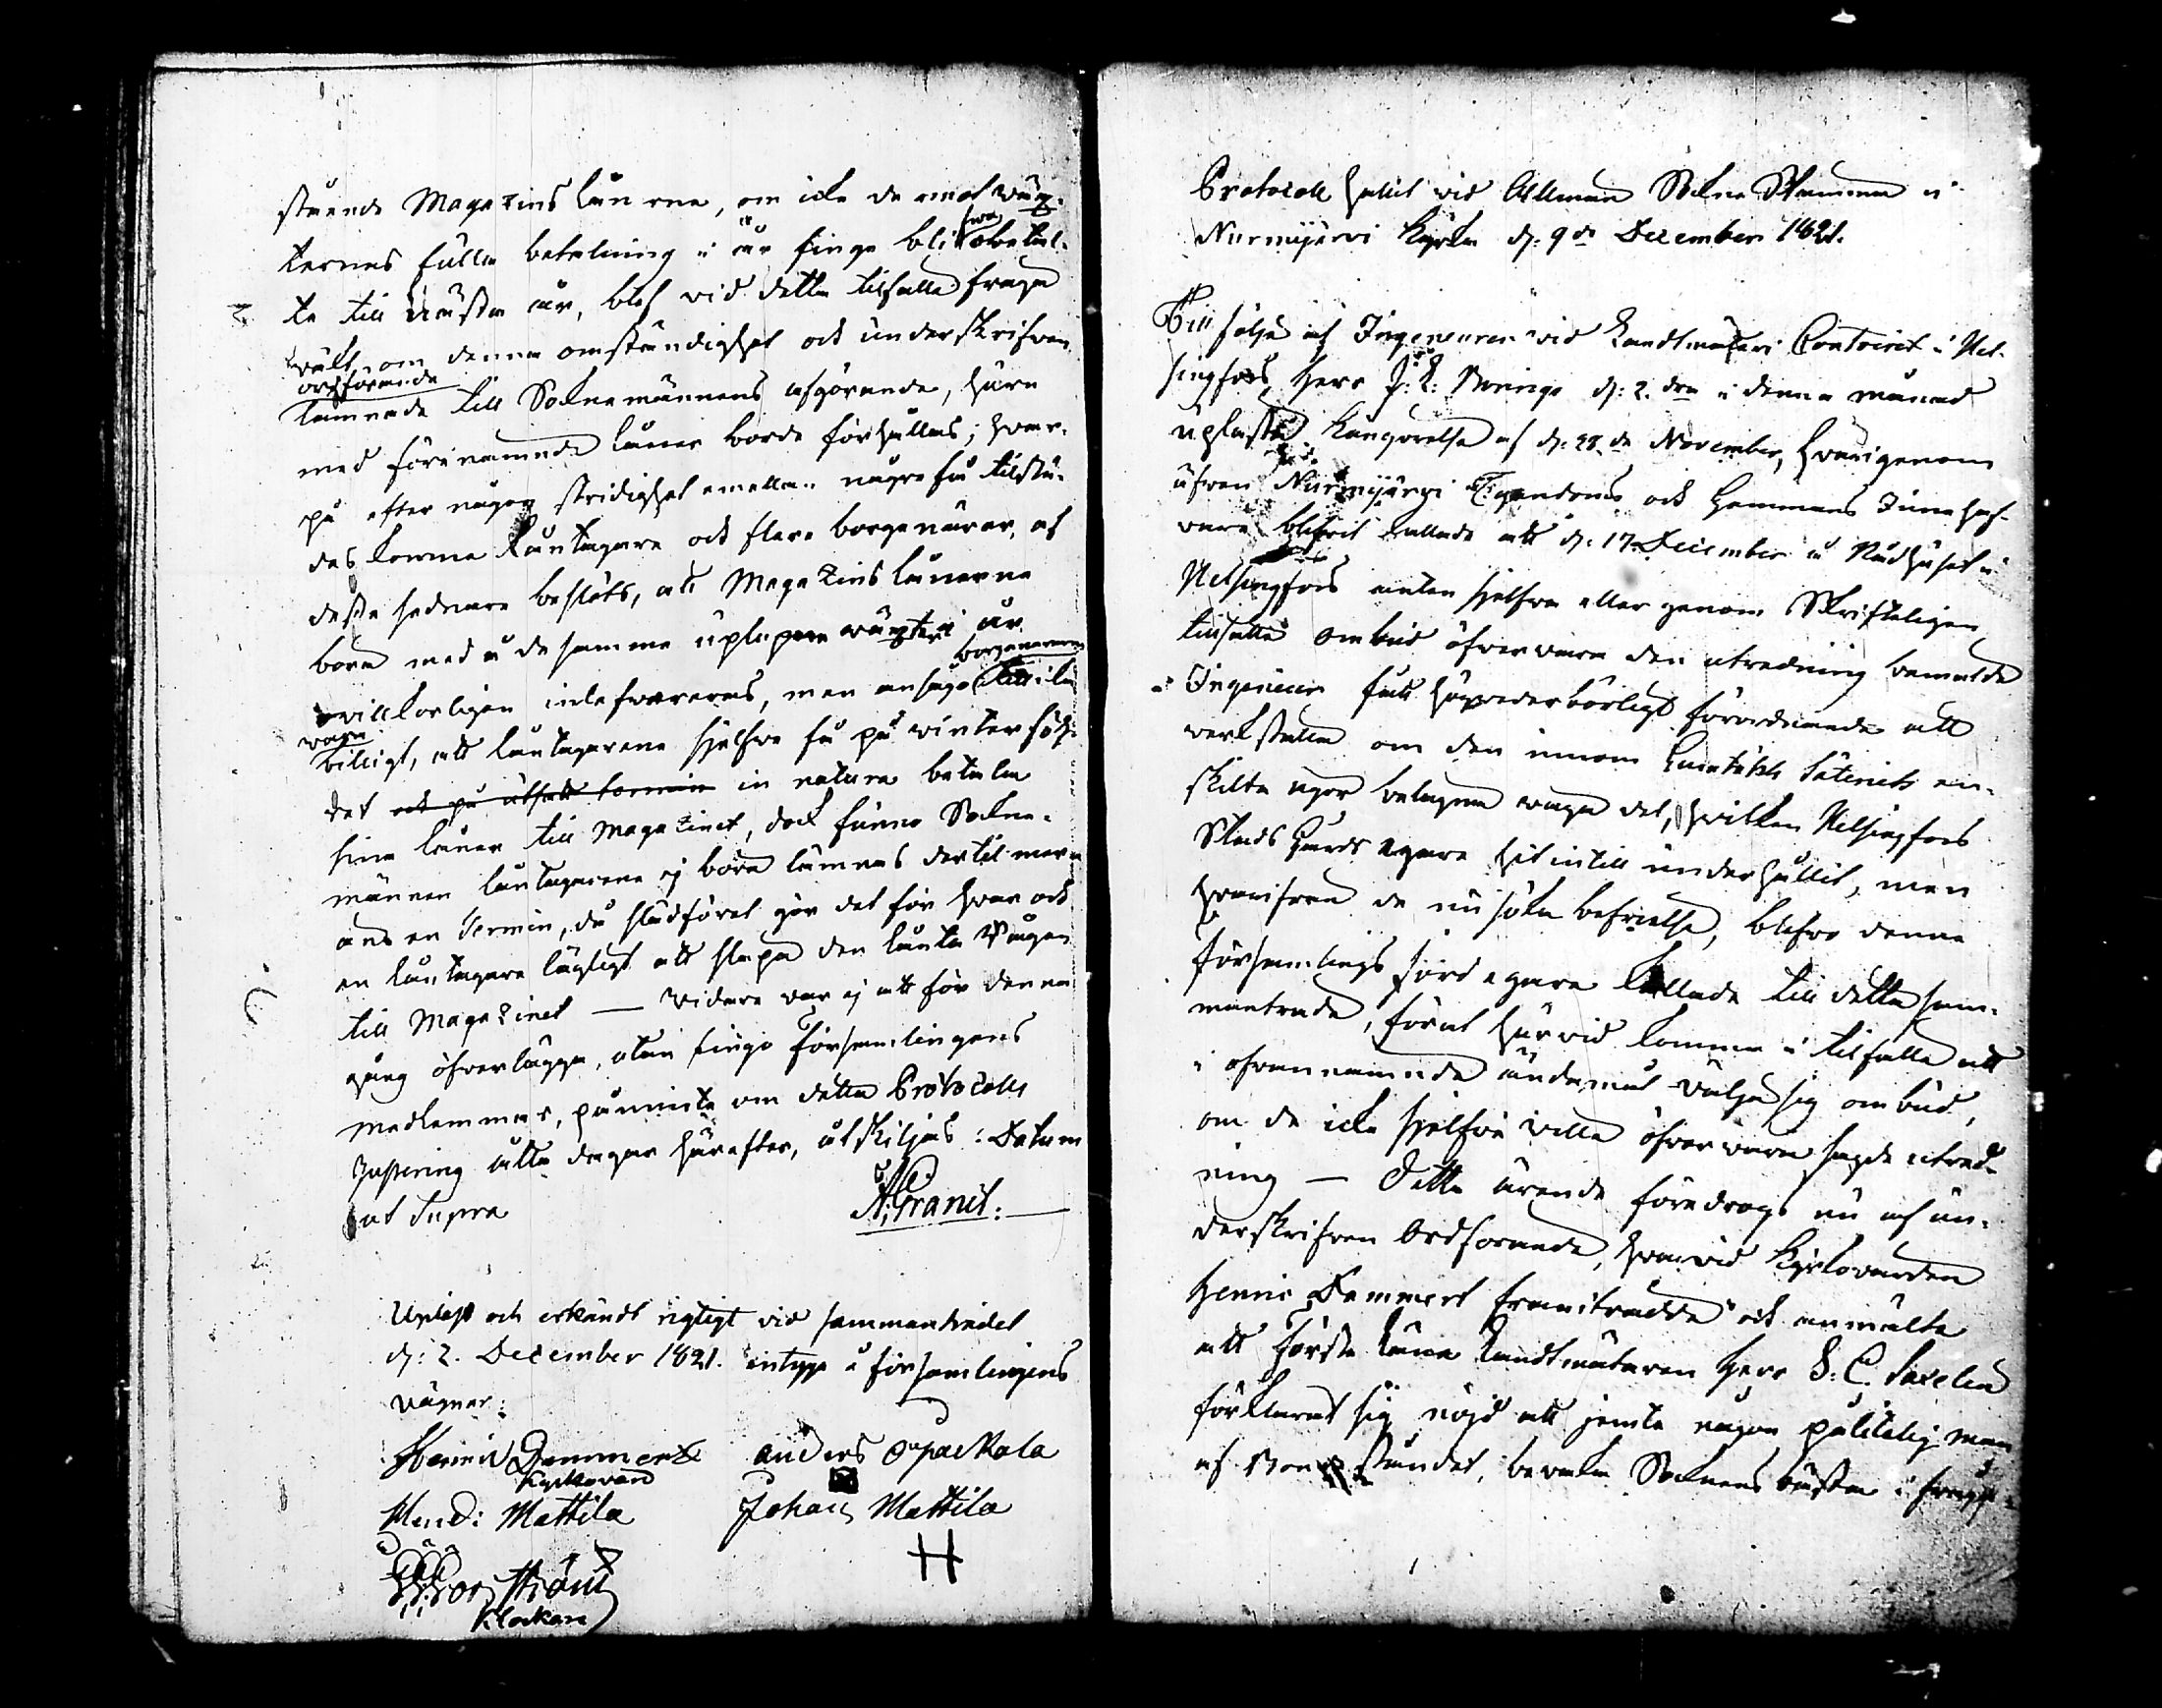 stående Magazins lånerne, om icke de emot wäx-
ternes fulla betalning i år finge bli swa obetal-
te till nästa år, blef vid detta tilfälle fråga
väkt, om denna omständighet och underskrifven
ordförande
lämnade till Socknemännens afgörande, huru
med förenämnde låner borde förhållas; hvar-
på efter någon stridighet emellan några få tilstä-
des komne låntagare och flere borgenärer, af
desse sednare beslöts, att Magazins lånerne
böra med å de samma uplupne wäxter i år
borgenärerne
ovillkorligen inlefwereras, men ansågo
waga
billigt, att låntagarene sjelfve få på winterfö-
ret och på utsatt termin in natura betala
sina låner till Magazinet, dock funno Sockne-
männen låntagarene ej böra lämnas dertil mer
än en Termin, då slädföret gör det för hvar och
en låntagare lägligt att släpa den lånta Säden
till Magazinet — Vidare var ej att för denna
gång öfverlägga, utan fingo Församlingens
medlemmar, påminte om detta Protocolls
Justering åtta dagar härefter, åtskiljas: Datum
ut Supra
A. Granit.
Upläst och erkändt rigtigt vid sammanträdet
d: 2. December 1821. intyga å församlingens
vägnar:
Henric Dammert Anders Ojackala
Kyrkovärd
Hend: Mattila Johan Mattila
Ström
Klockare
Protocoll hållit vid Allmän Sockne Stämma i
Nurmijärvi Kyrka d: 9de December 1821.
Till följe af Ingenieuren vid Landtmäteri Contoiret i Hel-
singfors, Herr J: E: Beringe d: 2.dra i denna månad
upläste Kungörelse af d: 28.de November, hvarigenom
äfven Nurmijärvi Egendoms och Hemmans Innehaf-
vare blifvit kallade att d: 17 December å Rådhuset i
Helsingfors antingen sjelfve eller genom Skrifteligen
tillsatte Ombud öfvervara den utredning bemälde
Ingenieur fått höga vederbörligt förordnande att
verkställa om den innom Gumtäkts Säteries en-
skilta ägor belägna wäga del, hvilken Helsingfors
Stads Gårds Egare hit intill underhållit, men
hvarifrån de nu söka befrielse, blefvo denne
Församlings jord egare kallade till detta sam-
manträde, förut härvid komma i tilfälle att
i ofvannämnde ändamål välja sig ombud,
om de icke sjelfve ville öfvervara sagde utred-
ning — Detta ärende föredrogs nu af un-
derskrifven Ordförande, hvarvid Kyrkovärden
Henric Dammert framträdde och anmälte
att Förste Läne Landtmätaren Herr S: C. Saxelin
förklarat sig nöjd att jemte någon pålitelig man
af Bondeståndet, bevaka Socknens bästa i fråga-